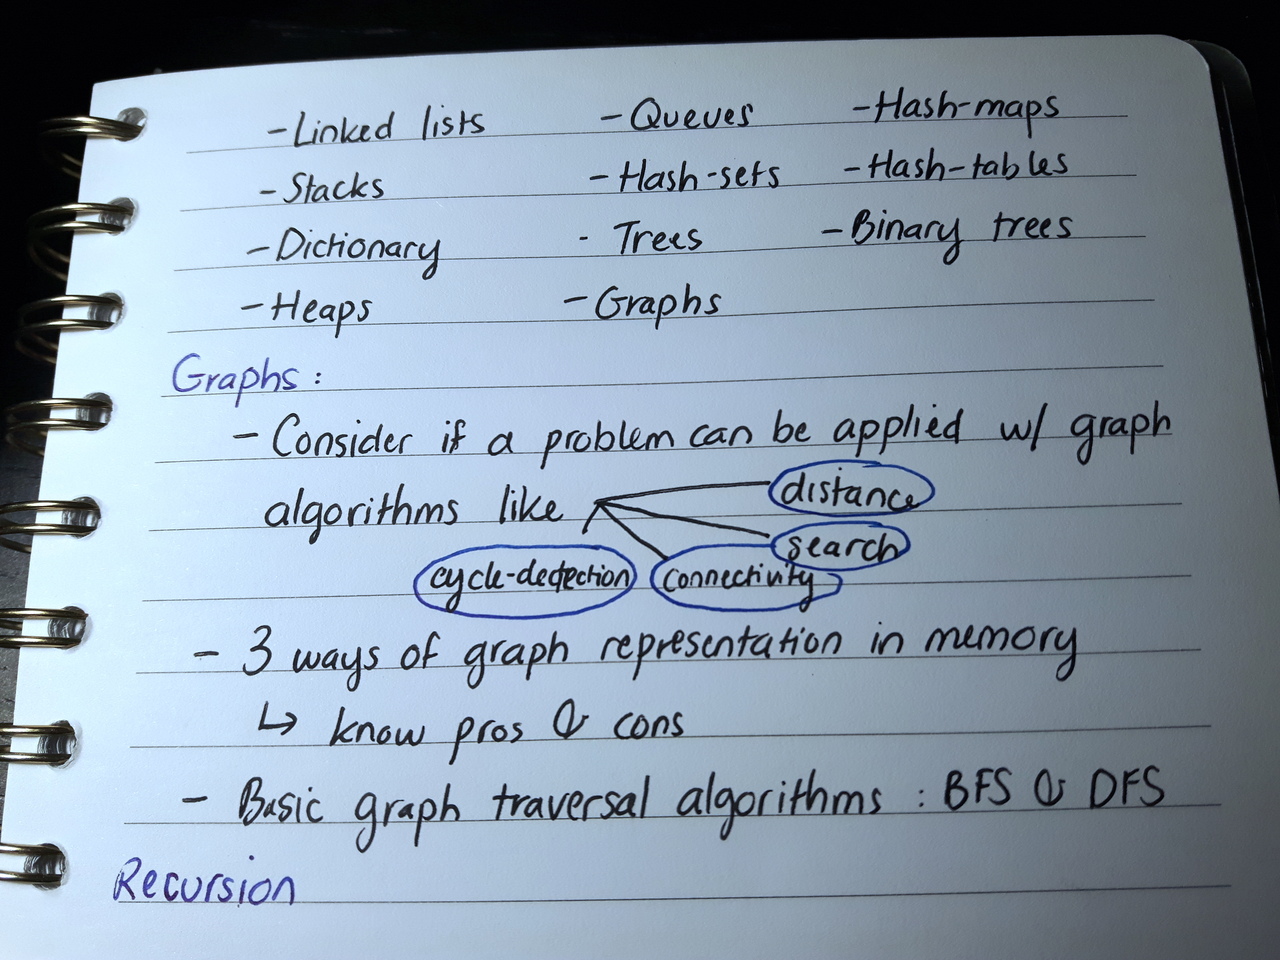 - Linked lists - Queues - Hash-maps
- Stacks - Hash-sets - Hash-tables
- Dictionary - Trees - Binary trees
- Heaps - Graphs
Graphs :
- Consider if a problem can be applied w/ graph
algorithms like distance
search
cycle-dectection connectivity
- 3 ways of graph representation in memory
↳ know pros & cons
- Basic graph traversal algorithms : BFS & DFS
Recursion